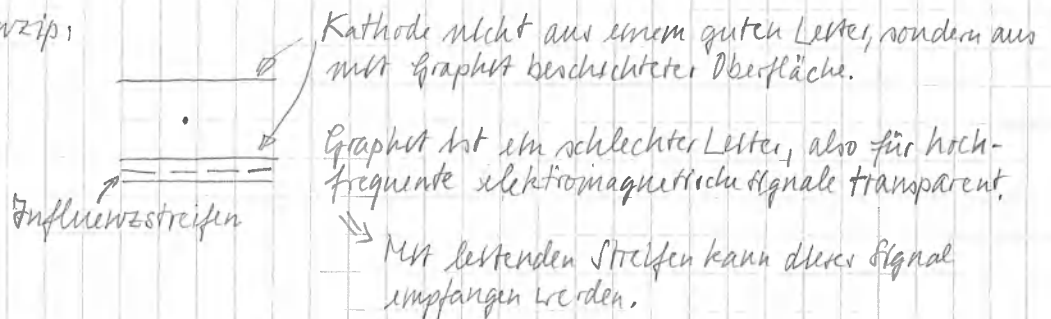 nzip:
Kathode nicht aus einem guten Leiter, sondern aus
mit Graphit beschichteter Oberfläche.
Graphit ist ein schlechter Leiter, also für hoch-
frequente elektromagnetische Signale transparent.
Influenzstreifen
Mit leitenden Streifen kann dieses Signal
empfangen werden.